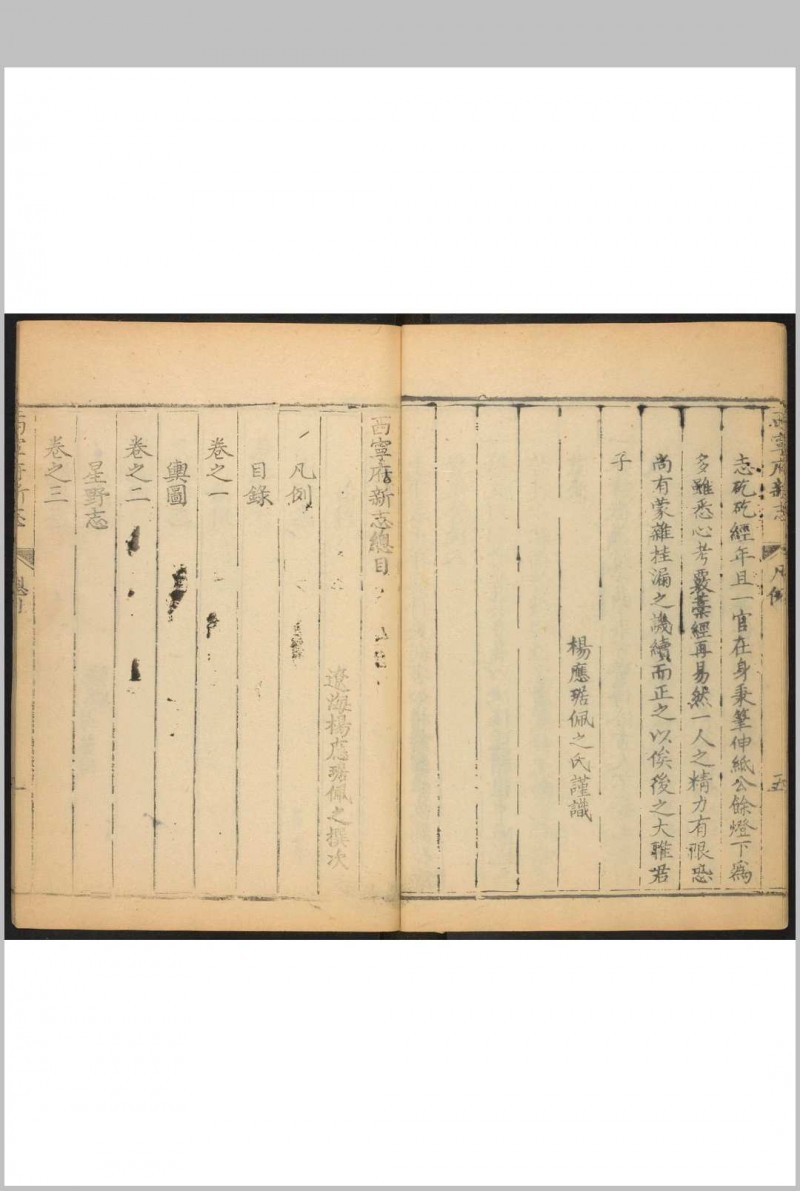 西寧府新志 凡例 五
志矻矻經年且一官在身秉筆伸紙公餘燈下爲
多雖悉心考覈藁經再易然一人之精力有限恐
尚有蒙雜挂漏之譏續而正之以俟後之大雅君
子
楊應琚佩之氏謹識
西寧府新志總目
遼海楊應琚佩之撰次
凡例
目錄
卷之一
輿圖
卷之二
星野志
卷之三
西寧府新志 總目 一